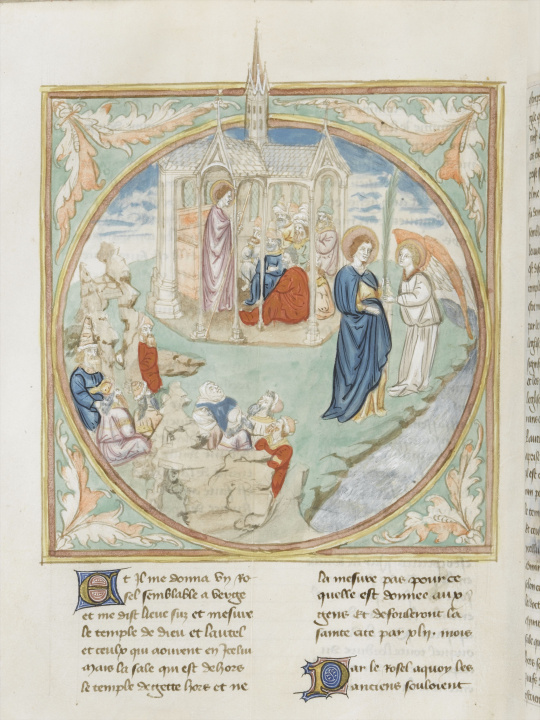 Et il me donna vn ro-
sel semblable a verge
et me dist lieue sus et mesure
le temple de dieu et lautel
et ceulx qui aourent en icelui
mais la sale qui est dehors
le temple degette hors et ne
la mesure pas pour ce
quelle est donnee aux
gens et defouleront la
sainte cite par xlii mois
Par le rosel aquoy les
anciens souloient